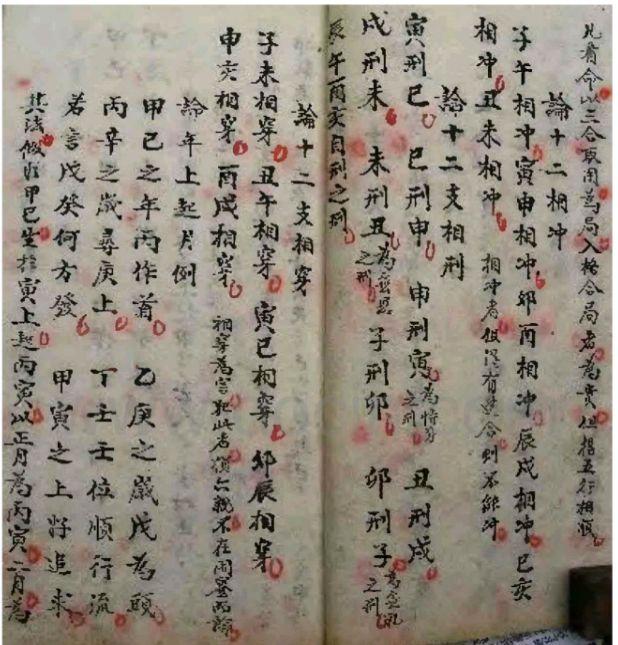 凡看命以三合取用為局入格合局者為貴但揩五行相順
論十二相冲
子午相冲寅申相冲卯酉相冲辰戌相冲巳亥
相冲丑未相冲 相冲者但没有 合則不能冲
論十二支相刑
寅刑巳 巳刑申 申刑寅為恃势之刑 丑刑戌
戌刑未 未刑丑為 之刑 子刑卯 卯刑子為無礼之刑
辰午酉亥自刑之刑
論十二支相穿
子未相穿 丑午相穿 寅巳相穿 卯辰相穿
申亥相穿 酉戌相穿 相穿為害犯此者 六親不在
論年上起月例
甲己之年丙作首 乙庚之歲戊為頭
丙辛之歲尋庚上 丁壬壬位順行流
若言戊癸何方發 甲寅之上好追求
其法假如甲己生於寅上起丙寅以正月為丙寅二月為